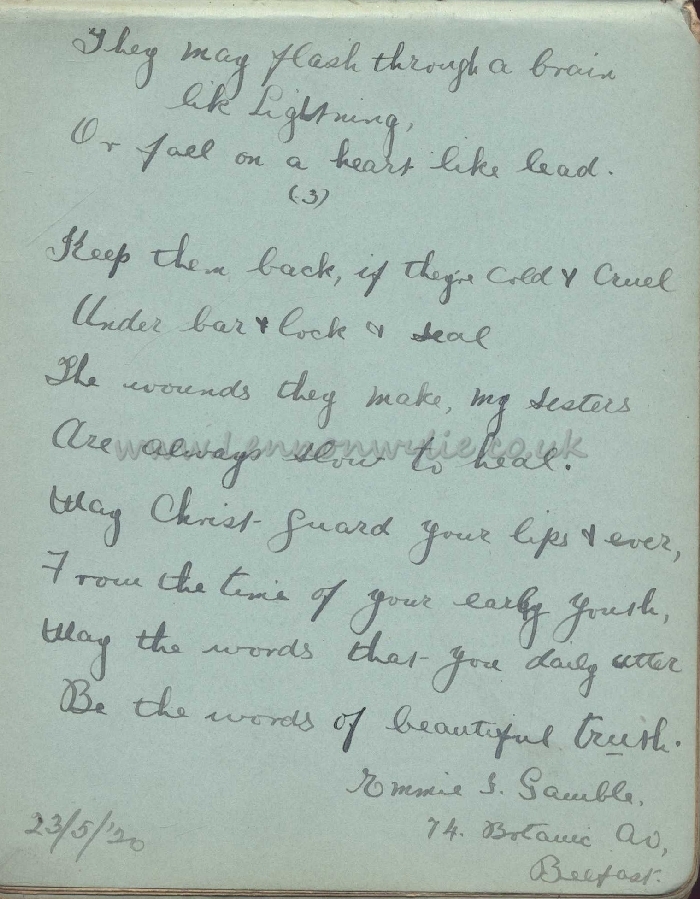 They may flash through a brain
lik Lightning,
Or fall on a heart like lead.
(.3)
Keep them back, if they're cold & Cruel
Under bar & lock & seal
The wounds they make, my sisters
Are always slow to heal.
www.lennonwylie.co.uk
May Christ guard your lips & ever,
From the time of your early youth,
May the words that you daily utter
Be the words of beautiful truth.
Emmie S. Gamble.
74. Botanic Av,
Belfast.
23/5/'20